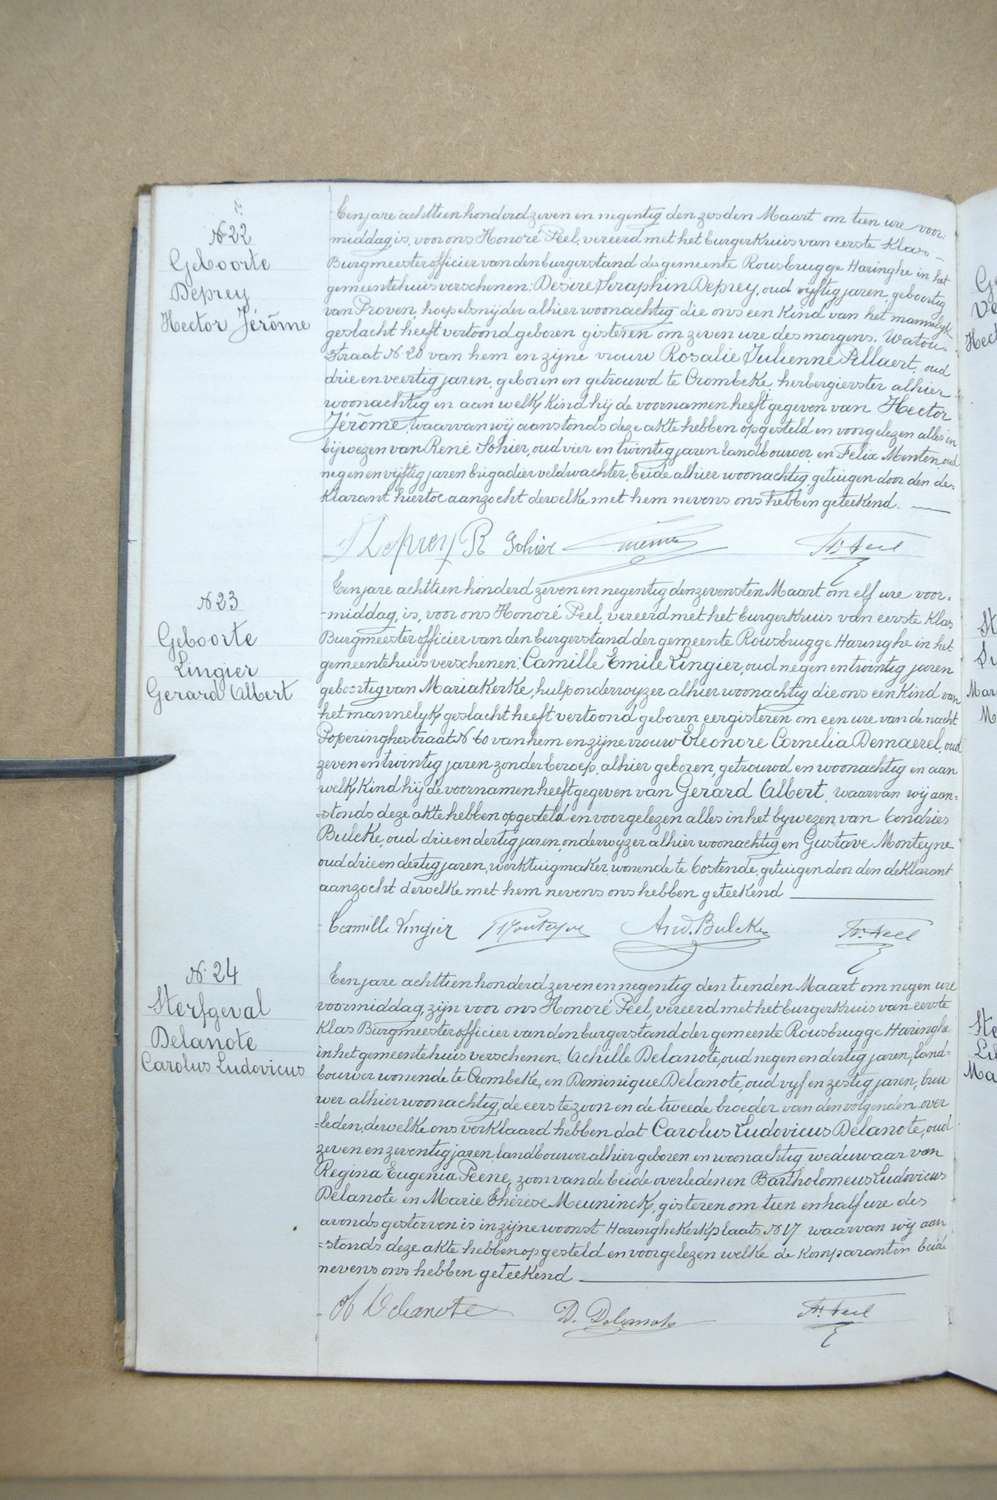 N. 22
Geboorte
Deprey
Hector Jérôme
Een jare achttien honderd zeven en negentig den zesden Maart om tien ure voor-
middag is, voor ons Honoré Peel, vereerd met het burgerkruis van eerste Klas-
Burgmeester officier van den burgerstand der gemeente Rousbrugge Haringhe in het
gemeentehuis verschenen: Desiré Seraphin Deprey, oud vyftig jaren, geboortig
van Proven, hoepelsnijder alhier woonachtig die ons een Kind van het mannelyk
geslacht heeft vertoond geboren gisteren om zeven ure des morgens, Watou-
straat N. 20 van hem en zijne vrouw Rosalie Julienne Pillaert, oud
drie en veertig jaren, geboren en getrouwd te Crombeke, herbergierster alhier
woonachtig en aan welk kind hij de voornamen heeft gegeven van Hector
Jérôme, waarvan wij aanstonds deze akte hebben opgesteld en voorgelezen alles in
bijwezen van René Sohier, oud vier en twintig jaren landbouwer en Felix Menten, oud
negen en vijftig jaren brigadier veldwachter, beide alhier woonachtig, getuigen door den de-
klarant hiertoe aanzocht dewelke met hem nevens ons hebben geteekend.
Deprey R Sohier Hre. Peel
N. 23
Geboorte
Lingier
Gerard Albert
Een jare achttien honderd zeven en negentig den zevensten Maart om elf ure voor-
-middag, is, voor ons Honoré Peel, vereerd met het burgerkruis van eerste Klas,
Burgmeester officier van den burgerstand der gemeente Rousbrugge Haringhe in het
gemeentehuis verschenen: Camille Emile Lingier, oud negen en twintig jaren
geboortig van Mariakerke, hulponderwyzer alhier woonachtig die ons een Kind van
het mannelyk geslacht heeft vertoond geboren eergisteren om een ure van de nacht
Poperinghestraat N. 60 van hem en zijne vrouw Eleonore Cornelia Demaerel, oud
zeven en twintig jaren zonder beroep, alhier geboren, getrouwd en woonachtig en aan
welk Kind hij de voornamen heeft gegeven van Gerard Albert, waarvan wij aan=
=stonds deze akte hebben opgesteld en voorgelezen alles in het bywezen van Andries
Bulcke, oud drie en dertig jaren, onderwyzer alhier woonachtig en Gustave Monteyne
oud drie en dertig jaren, werktuigmaker, wonende te Oostende, getuigen door den deklarant
aanzocht dewelke met hem nevens ons hebben geteekend
Camille Lingier Monteyne And. Bulcke Hre. Peel
N. 24
Sterfgeval
Delanote
Carolus Ludovicus
Een jare achttien honderd zeven en negentig den tienden Maart om negen ure
voormiddag, zijn voor ons Honoré Peel, vereerd met het burgerkruis van eerste
Klas Burgmeester officier van den burgerstand der gemeente Rousbrugge Haringhe
in het gemeentehuis verschenen: Achille Delanote, oud negen en dertig jaren, land=
bouwer wonende te Crombeke, en Dominique Delanote, oud vyf en zestig jaren, brou
wer alhier woonachtig, de eerste zoon en de tweede broeder van den volgenden over
=leden, derwelke ons verklaard hebben dat Carolus Ludovicus Delanote, oud
zeven en zeventig jaren landbouwer alhier geboren en woonachtig weduwaar van
Regina Eugenia Peene, zoon van de beide overledenen Bartholomeus Ludovicus
Delanote en Marie Thérèse Meuninck, gisteren om tien en half ure des
avonds gestorven is in zijne woonst Haringhe Kerkplaats, N. 17 waarvan wij aan
=stonds deze akte hebben opgesteld en voorgelezen welke de komparanten beide
nevens ons hebben geteekend
A Delanote D. Delanote Hre. Peel